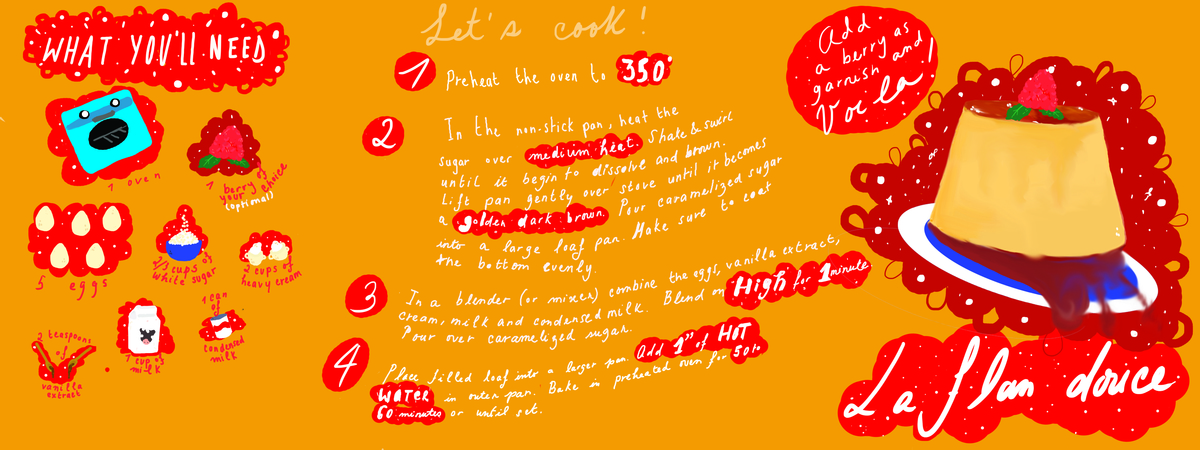 WHAT YOU'LL NEED
1 oven
1 berry of
your choice
(optional)
5 eggs
2/3 cups of
white sugar
2 cups of
heavy cream
2 teaspoons
of
vanilla
extract
1 cup of
milk
1 can
of
condensed
milk
Let's cook!
1
Preheat the oven to 350°
2
In the non-stick pan, heat the
sugar over medium heat. Shake & swirl
until it begin to dissolve and brown.
Lift pan gently over stove until it becomes
a golden dark brown. Pour caramelized sugar
into a large loaf pan. Make sure to coat
the bottom evenly.
3
In a blender (or mixer) combine the eggs, vanilla extract,
cream, milk and condensed milk. Blend on High for 1 minute
Pour over caramelized sugar.
4
Place filled loaf into a larger pan. Add 1" of HOT
WATER in outer pan. Bake in preheated oven for 50 to
60 minutes or until set.
Add
a berry as
garnish and
Voila!
La flan douce